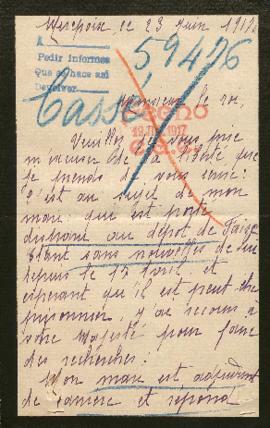 Mirepoix, le 23 Juin 1917
A
Pedir informes
Que se hace así
Devolver
59476
Casse
Monsieur le roi,
19 1917
Veuillez je vous prie
m'excuser de la liberté que
je prends de vous écrire:
C'est au sujet de mon
mari que est porté
disparu au dépôt de
Étant sans nouvelles de lui
depuis le 15 avril et
espérant qu'il est peut être
prisonnier, j'ai recours à
votre Majesté pour faire
des recherches:
Mon mari est adjudant
de carrière et répond